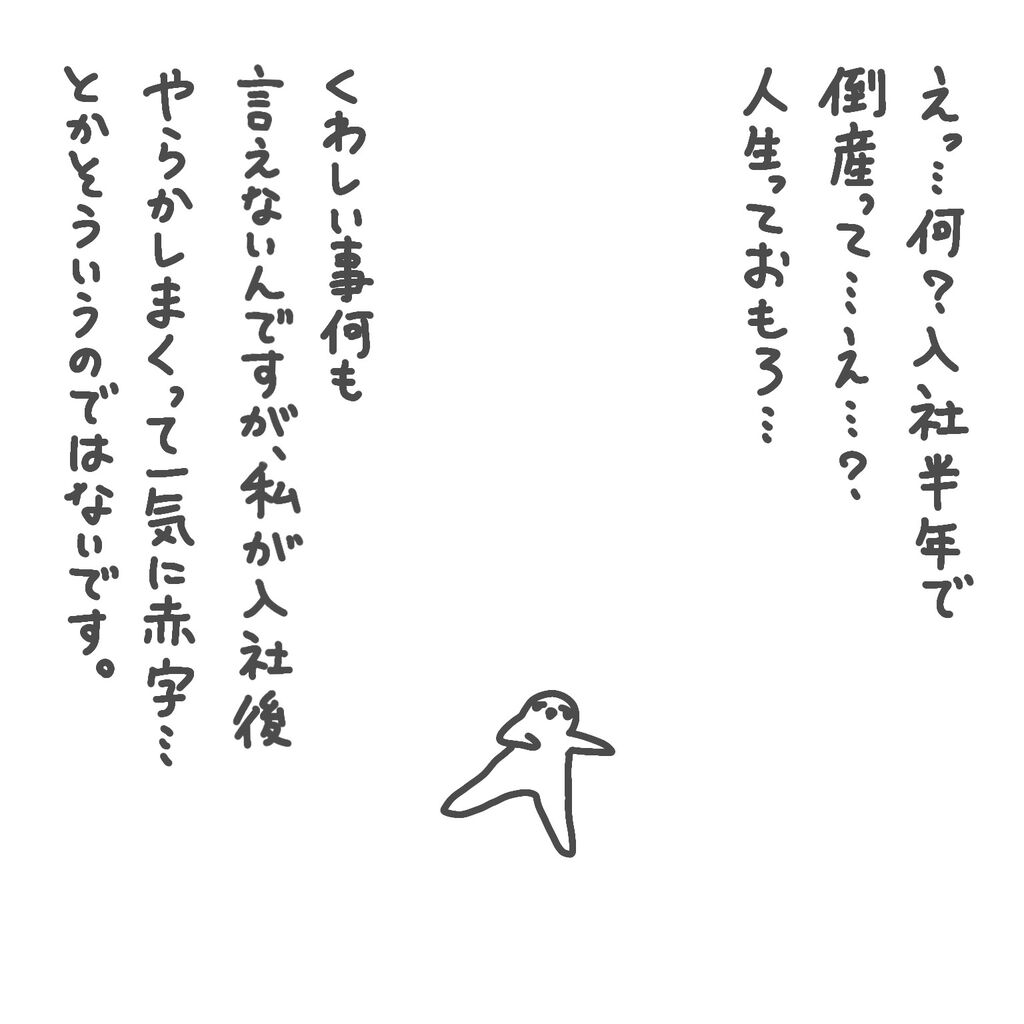 えっ…何？入社半年で
倒産って……え…？
人生っておもろ…
くわしい事何も
言えないんですが、私が入社後
やらかしまくって一気に赤字…
とかそういうのではないです。